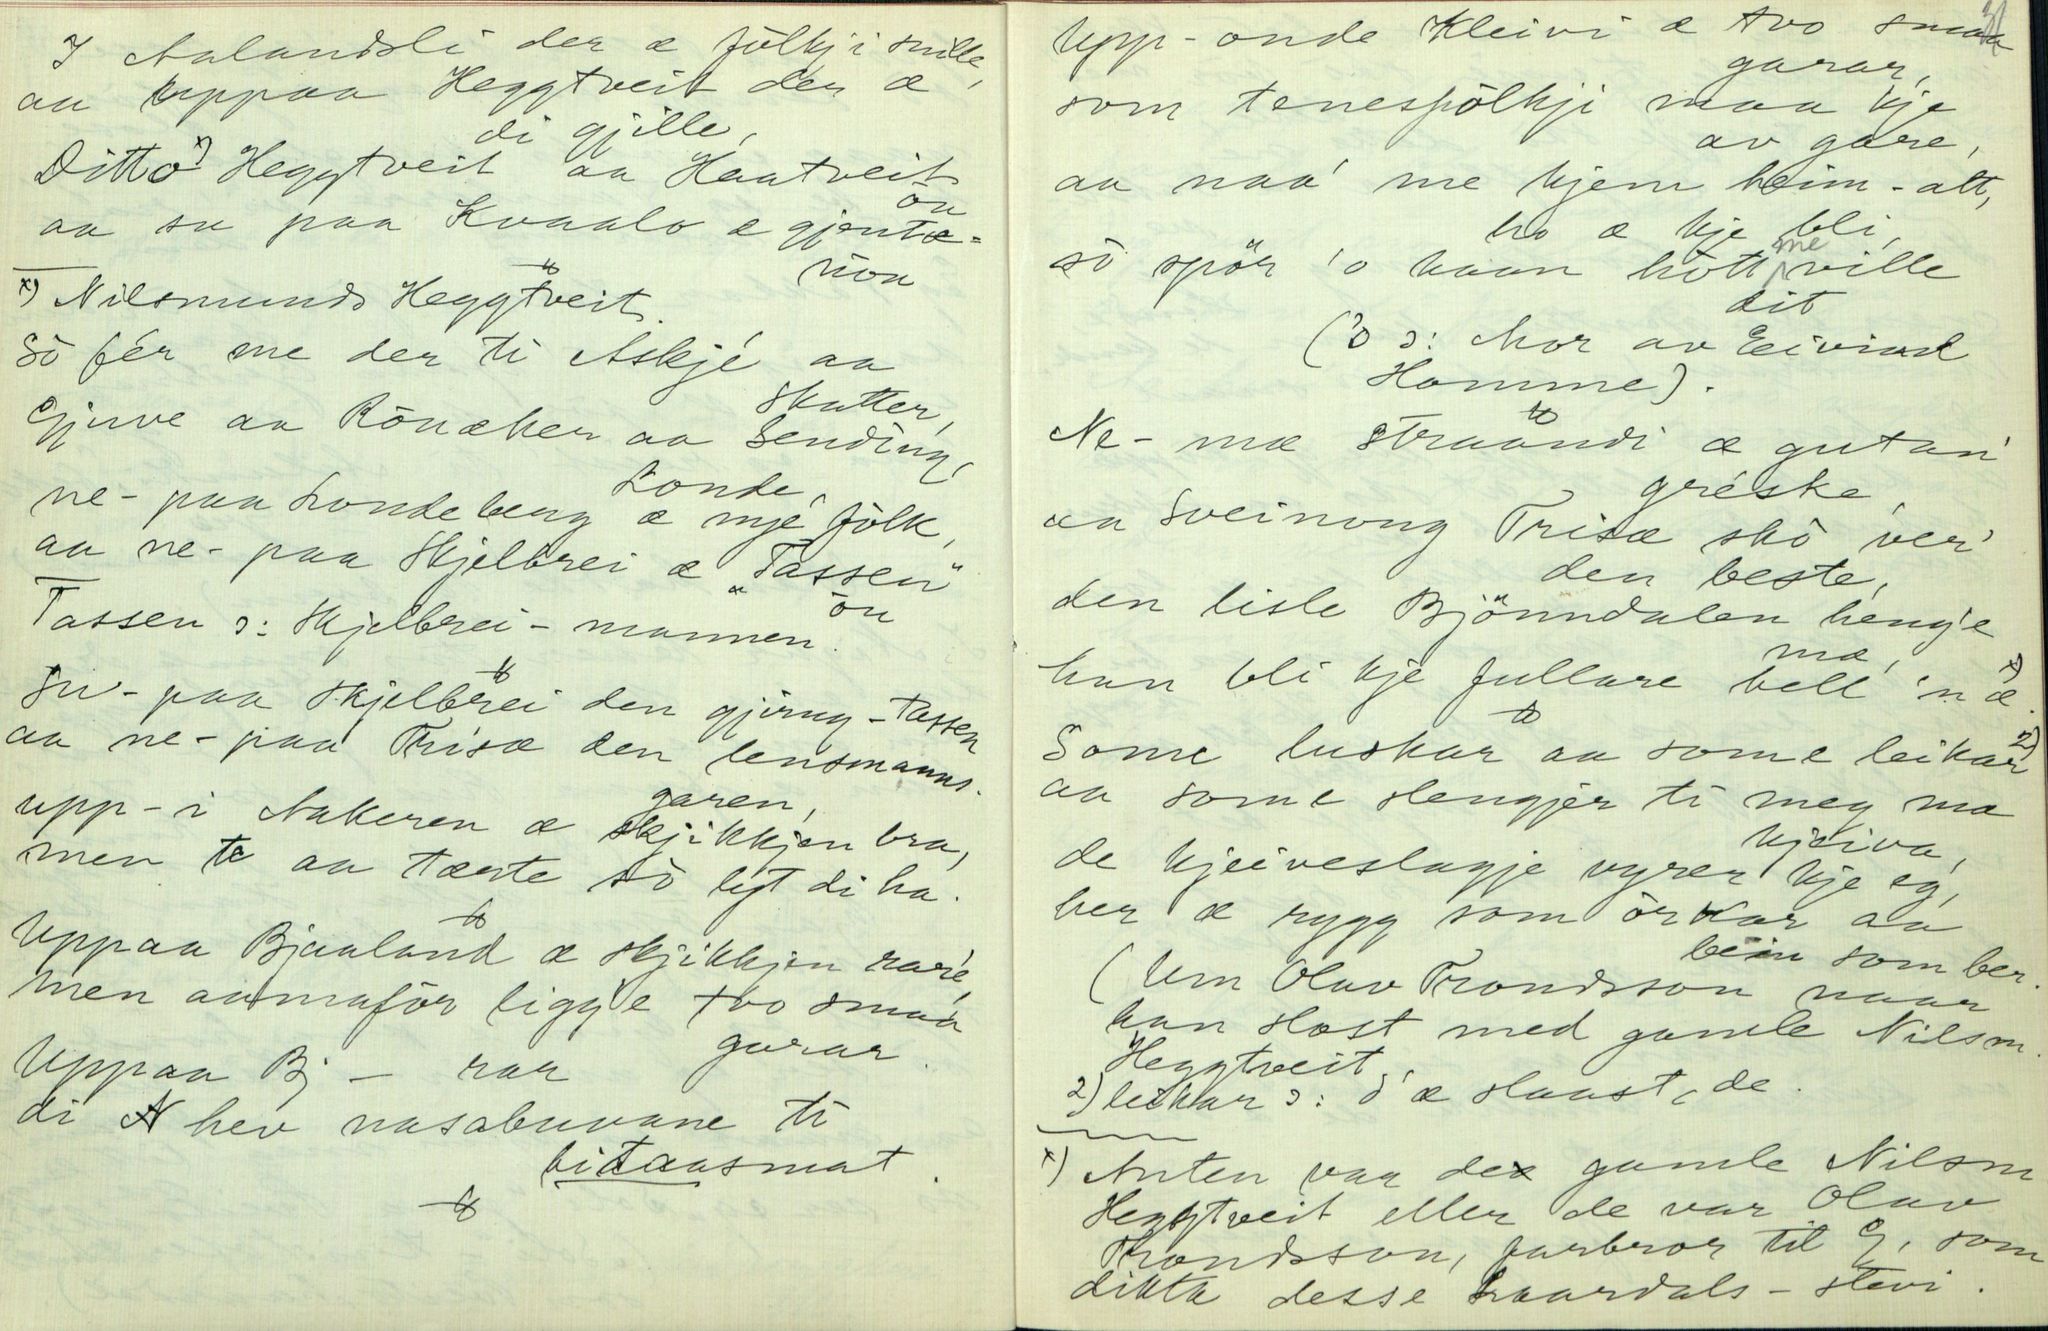 I Aalandsli der æ fölkji snille,
aa uppaa Heggtveit der æ
di gjille,
Ditto x) Heggtveit aa Haatveit
ön
aa su paa Kvaalo æ gjentæ-
nöa
x) Nilsmunds Heggtveit.
Sö fér me der ti Askjé aa
Skatter,
Gjuve aa Rönæker aa Sending,
Londe,
ne-paa Londeberg æ mjé fölk,
aa ne-paa Skjelbrei æ "Tassen"
ön
Tassen ɔ: Skjelbrei-mannen.
Su-paa Skjelbrei den gjirug-Tassen
aa ne-paa Trisæ den lensmanns-
garen,
upp-i Aakeren æ skjikkjen bra,
men te aa tærte sö lyt di ha.
Uppaa Bjaaland æ skjikkjen rare,
men aamaför ligg'e tvo smaa
garar.
Uppaa Bj — rar
di hev nasabuvane ti
bitaasmat.
31
Upp-onde Kleivi æ tvo smaa
garar,
som tenesfölkji maa kje
av gare,
aa naa' me kjem heim-att,
ho æ kje bli,
sö spör 'o haan hott me ville
dit
('o ɔ: Mor av Eivind
Homme).
Ne-mæ Straandi æ gutan'
gréske,
aa Sveinong Trisæ skö ver'
den beste,
den lisle Bjönndalen heng'e
mæ,
han bli kje fullare hell 'n æ x).
Some luskar aa some leikar 2)
aa some slengjer ti meg mæ
kjeiva,
de kjeiveslagje vyrer kje eg,
her æ rygg som örkar aa
bein som ber.
(Um Olav Trondsson naar
han slost med gamle Nilsm.
Heggtveit.
2) leikar ɔ: d'æ slaast, de.
x) Anten var de gamle Nilsm
Heggtveit eller de var Olav
Trondsson, farbror til G, som
dikta desse Laardals-stevi.